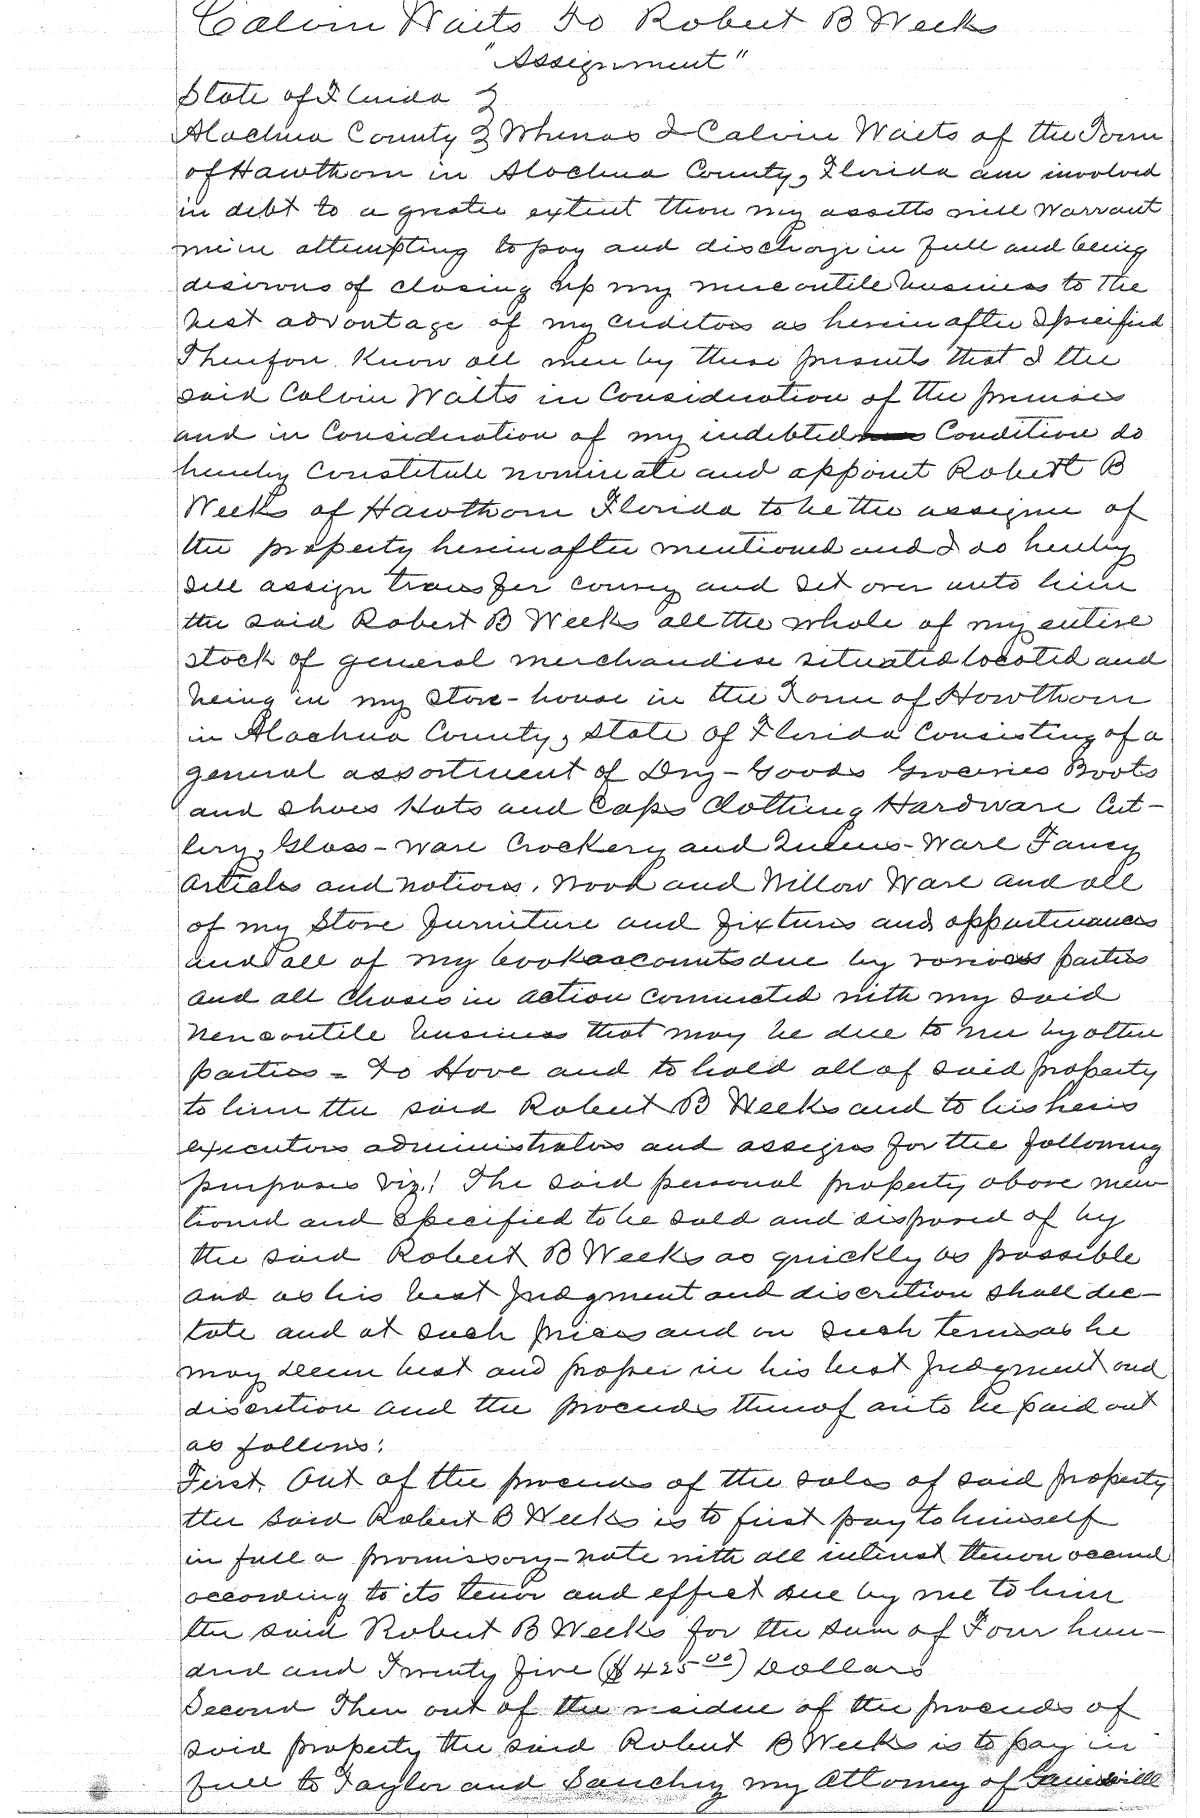 Calvin Waits To Robert B Weeks
"Assignment"
State of Florida }
Alachua County } Whereas I Calvin Waits of the Town
of Hawthorn in Alachua County, Florida am involved
in debt to a greater extent than my assetts will warrant
me in attempting to pay and discharge in full and being
desirous of closing up my mercantile business to the
best advantage of my creditors as hereinafter specified
Therefore Know all men by these presents that I the
said Calvin Waits in Consideration of the premises
and in Consideration of my indebted Condition do
hereby Constitute nominate and appoint Robert B
Weeks of Hawthorn Florida to be the assignee of
the property hereinafter mentioned and I do hereby
sell assign transfer convey and set over unto him
the said Robert B Weeks all the whole of my entire
stock of general merchandise situated located and
being in my store-house in the Town of Hawthorn
in Alachua County, State of Florida Consisting of a
general assortment of Dry-Goods Groceries Boots
and Shoes Hats and Caps Clothing Hardware Cut-
lery, Glass-ware Crockery and Queens-Ware Fancy
Articles and notions, Wood and Willow Ware and all
of my Store furniture and fixtures and appurtenances
and all of my book accounts due by various parties
and all choses in action connected with my said
mercantile business that may be due to me by other
parties - To Have and to hold all of said property
to him the said Robert B Weeks and to his heirs
executors administrators and assigns for the following
purposes viz! The said personal property above men-
tioned and specified to be sold and disposed of by
the said Robert B Weeks as quickly as possible
and as his best judgment and discretion shall dic-
tate and at such prices and on such terms as he
may deem best and proper in his best judgment and
discretion and the proceeds thereof are to be paid out
as follows:
First. Out of the proceeds of the sales of said property
the said Robert B Weeks is to first pay to himself
in full a promissory-note with all interest thereon accrued
according to its tenor and effect due by me to him
the said Robert B Weeks for the sum of Four hun-
dred and Twenty five ($425.00) Dollars
Second Then out of the residue of the proceeds of
said property the said Robert B Weeks is to pay in
full to Taylor and Sanchez my Attorney of Gainesville